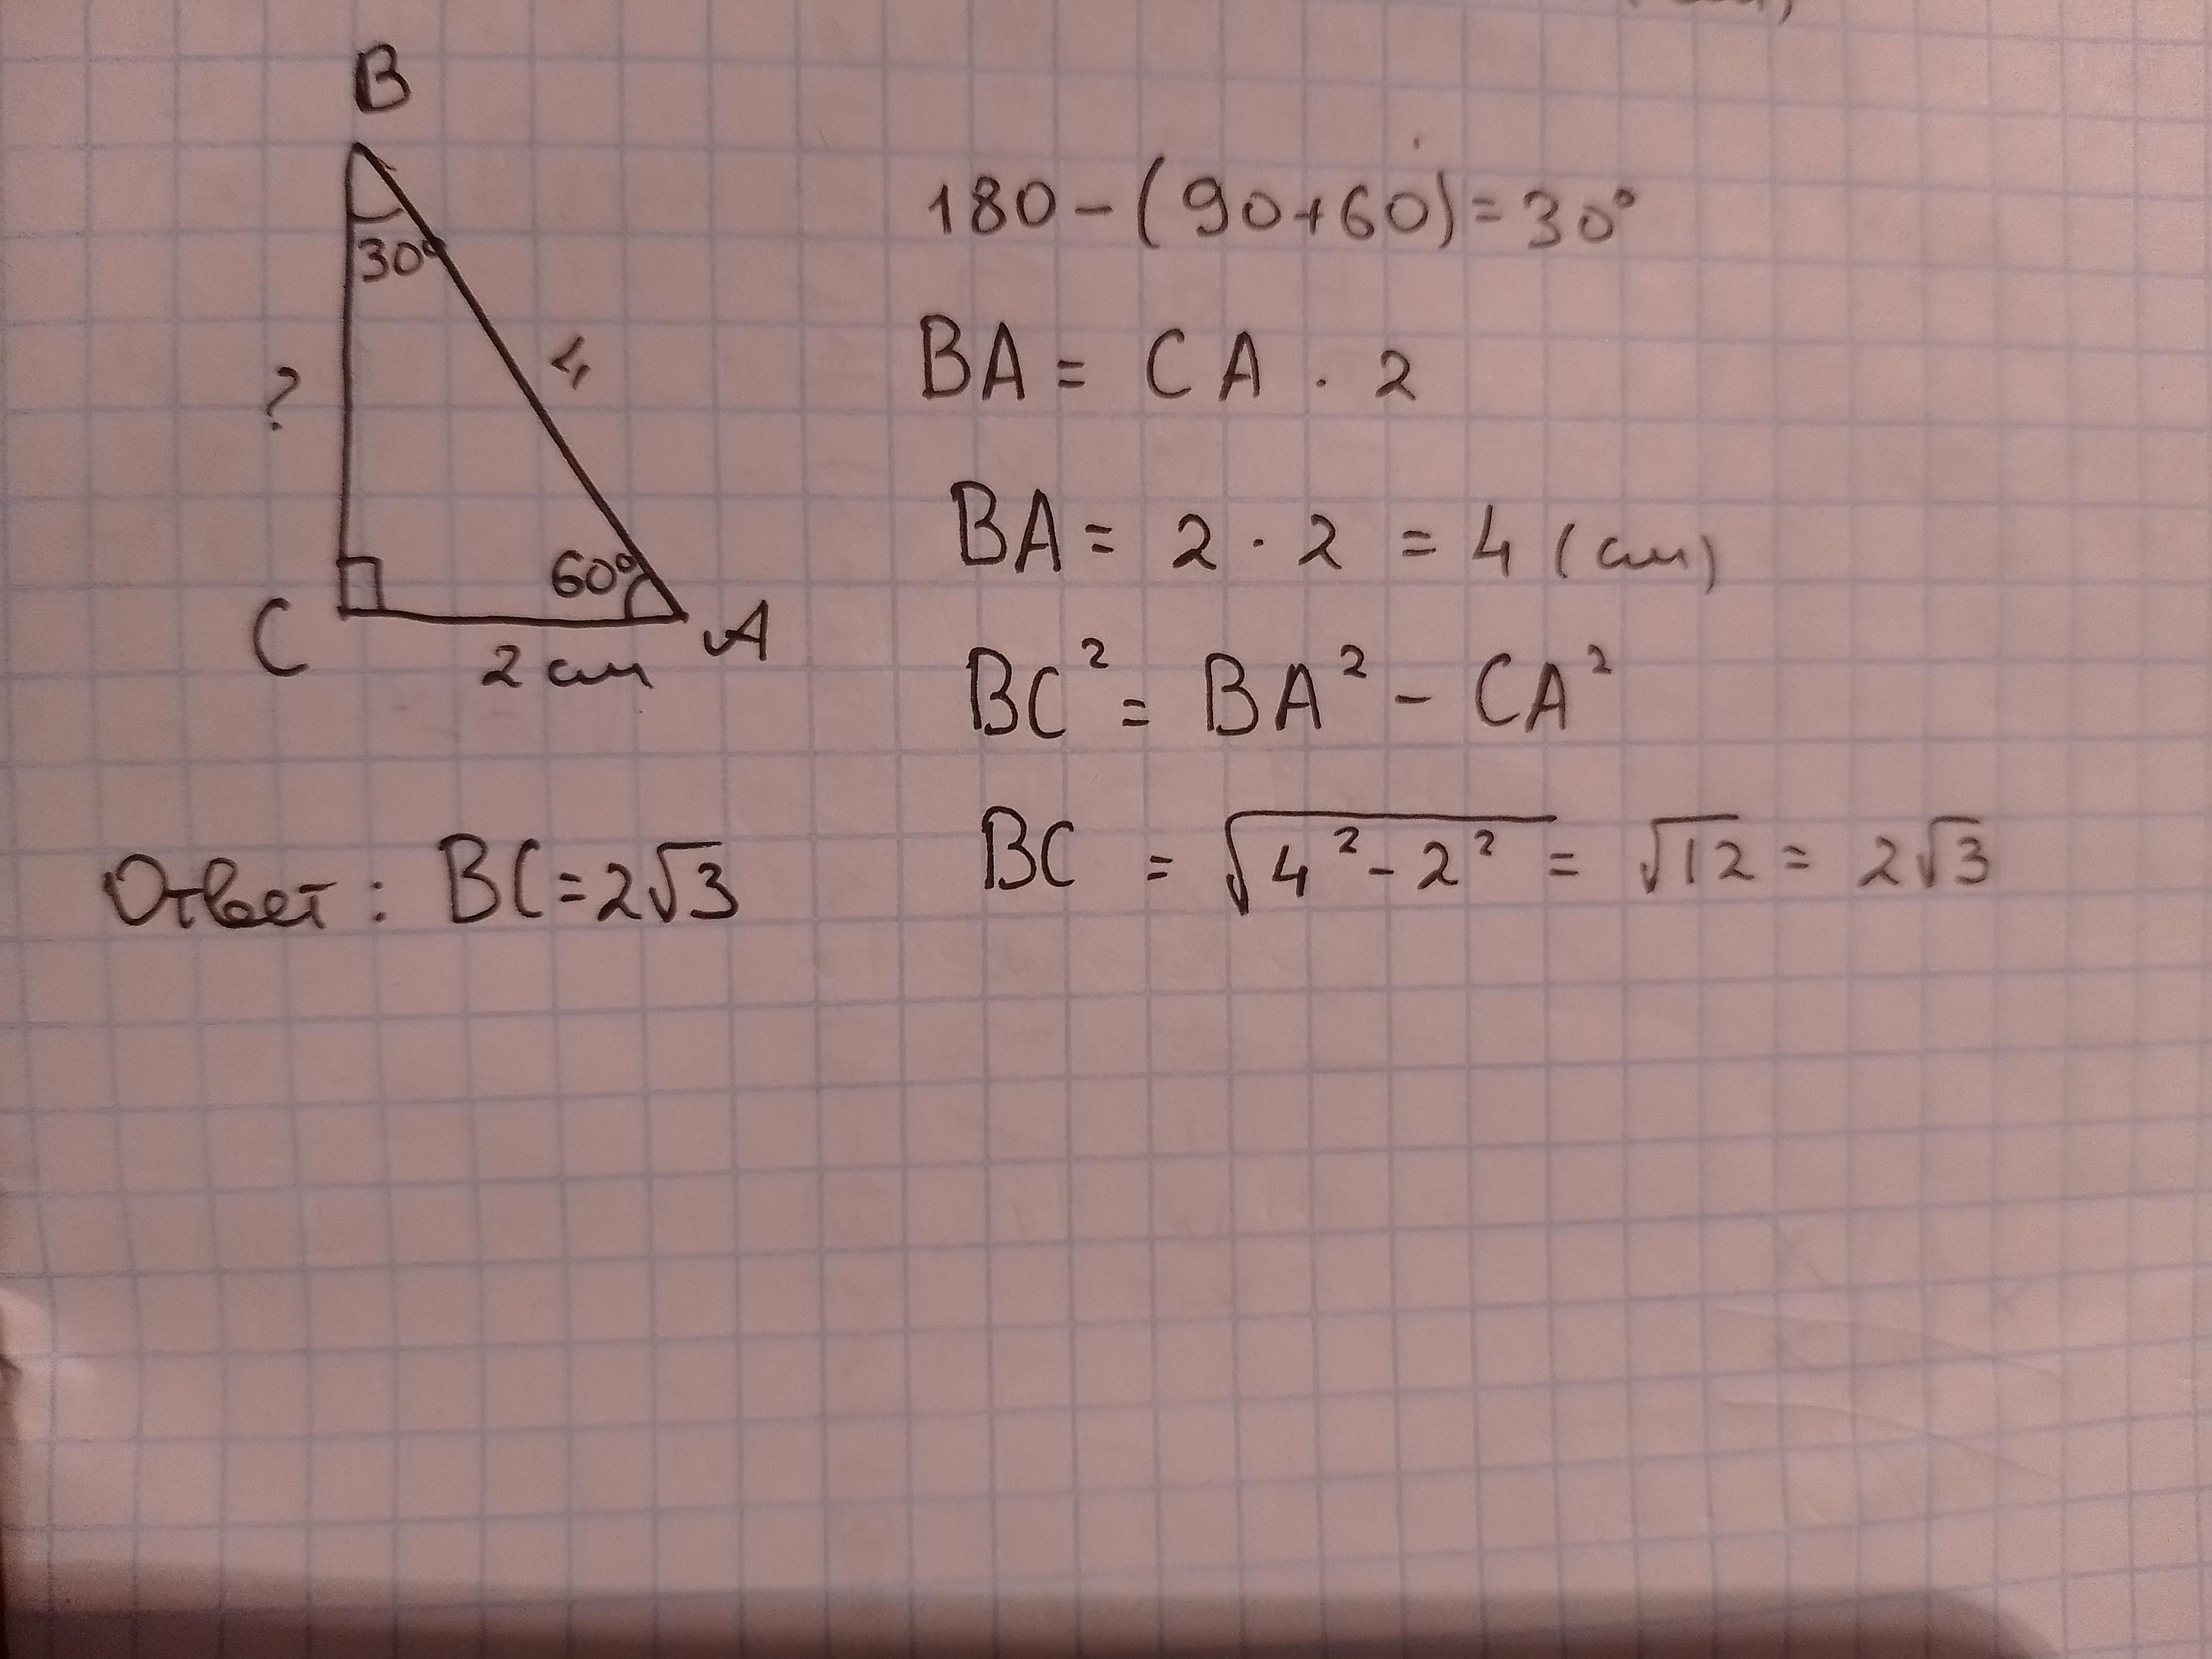 B
30°
?
4
60°
C
2 см
A
180-(90+60)=30°
BA = CA · 2
BA = 2 · 2 = 4 (см)
BC² = BA² - CA²
BC = √4²-2² = √12 = 2√3
Ответ: BC=2√3